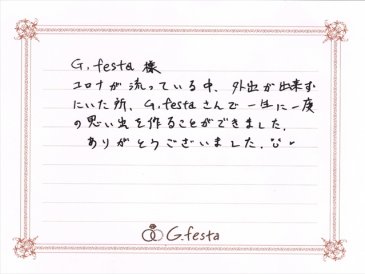 G.festa 様
コロナが流っている中、外出が出来ず
にいた所、G.festaさんで一生に一度
の思い出を作ることができました。
ありがとうございました。
G.festa